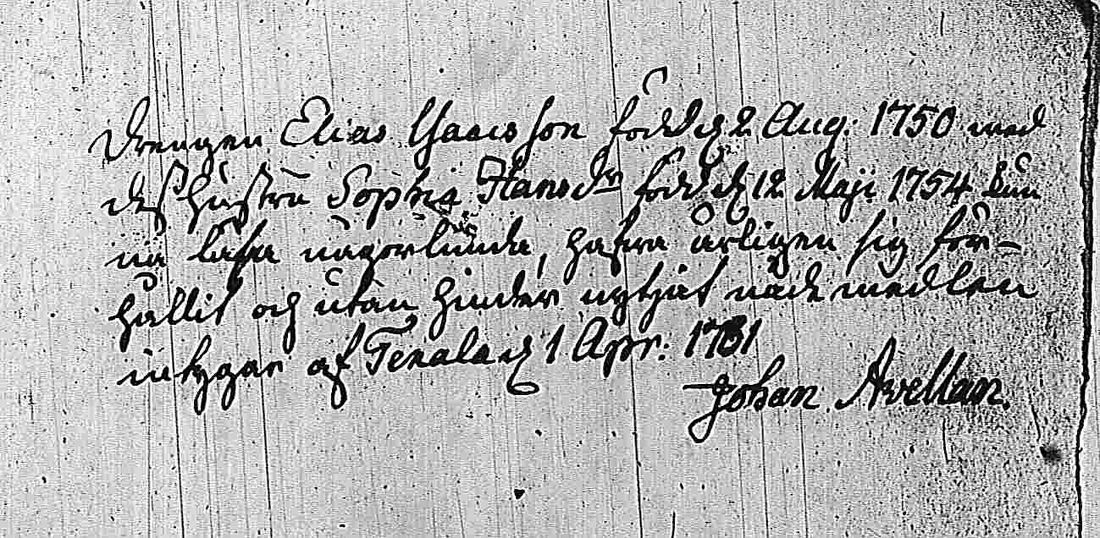 Drengen Elias Isaacsson född d 2 Aug: 1750 med
des hustru Sophia Hansdr född d 12 Maji 1754 kun
na läsa någorlunda, hafva ärligen sig för-
hållit och utan hinder nytjat nådemedlen
intygar af Tenala d 1 Apr: 1781
Johan Avellan.